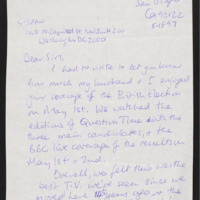 San Diego
Ca 92122
C-SPAN
Washington DC 20001
Dear Sirs,
I had to write to let you know
how much my husband & I enjoyed
your coverage of the British Election
on May 1st. We watched the
editions of Question Time with the
three main candidates, & the
BBC live coverage of the results on
May 1st & 2nd.
we felt this was the
best T.V. we've seen since we
moved here years ago & the